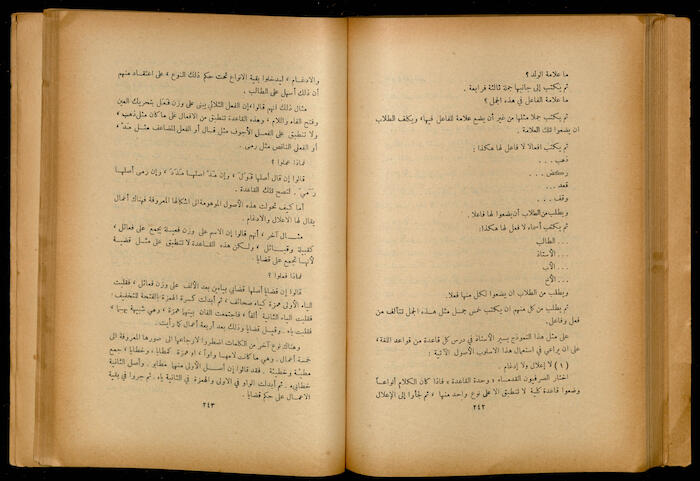 ما علامة الولد ؟
ثم يكتب إلى جانبها جملة ثالثة فرابعة .
ما علامة الفاعل في هذه الجمل ؟
ثم يكتب جملا مثلها من غير أن يضع علامة للفاعل فيها، ويكلف الطلاب
ان يضعوا تلك العلامة .
ثم يكتب افعالا لا فاعل لها هكذا :
ذهب . . .
ركض . . .
قعد . . .
وقف . . .
ويطلب من الطلاب أن يضعوا لها فاعلا .
ثم يكتب أسماء لا فعل لها هكذا :
. . . الطالب
. . . الأستاذ
. . . الأب
. . . الأخ
ويطلب من الطلاب ان يضعوا لكل منها فعلا .
ثم يطلب من كل منهم ان يكتب خمس جمل مثل هذه الجمل تتألف من
فعل وفاعل .
على مثل هذا النموذج يسير الأستاذ في درس كل قاعدة من قواعد اللغة ،
على ان يراعي في استعمال هذا الاسلوب الأصول الآتية :
( ١ ) لا إعلال ولا إدغام .
اختار الصرفيون القدماء ، وحدة القاعدة ، فاذا كان الكلام أنواعاً
وضعوا قاعدة كلية لا تنطبق الا على نوع واحد منها ، ثم لجأوا إلى الإعلال
٢٤٢
والادغام ، ليدخلوا بقية الانواع تحت حكم ذلك النوع ، على اعتقاد منهم
أن ذلك أسهل على الطالب .
مثال ذلك انهم قالوا ، إن الفعل الثلاثي يبنى على وزن فعل بتحريك العين
وفتح الفاء واللام ، وهذه القاعدة تنطبق من الافعال على ما كان مثل ذهب ،
ولا تنطبق على الفعل الأجوف مثل قال أو الفعل المضاعف مثل مدّ ،
أو الفعل الناقص مثل رمى .
فماذا عملوا ؟
قالوا إن قال أصلها قَوَلَ ، وإن مدّ اصلها مَدَدَ ، وإن رمى أصلها
رَمَيَ . لتصح تلك القاعدة .
أما كيف تحولت هذه الأصول الموهومة الى اشكالها المعروفة فهناك أعمال
يقال لها الاعلال والادغام .
مثال آخر ، أنهم قالوا إن الاسم على وزن فعيلة يجمع على فعائل ،
كقبيلة وقبائل ، ولكن هذه القاعدة لا تنطبق على مثل قضية
لأنها تجمع على قضايا .
فماذا فعلوا ؟
قالوا إن قضايا أصلها قضايي بياءين بعد الألف على وزن فعائل ، فقلبت
الياء الأولى همزة كياء صحائف ، ثم أبدلت كسرة الهمزة بالفتحة للتخفيف ؛
فقلبت الياء الثانية ألفاً ، فاجتمعت الفان بينهما همزة ، وهي شبيهة بهما ،
فقلبت ياء . وقيل قضايا وذلك بعد أربعة أعمال كما رأيت .
وهناك نوع آخر من الكلمات اضطروا لارجاعها الى صورها المعروفة الى
خمسة أعمال . وهي ما كانت لامها واواً ، او همزة كمطايا ، وخطايا ، جمع
مطيئة وخطيئة . فقد قالوا إن أصل الأولى منها مطايو . وأصل الثانية
خطايىء . ثم أبدلت الواو في الاولى والهمزة في الثانية ياء . ثم جروا في بقية
الاعمال على حكم قضايا .
٢٤٣